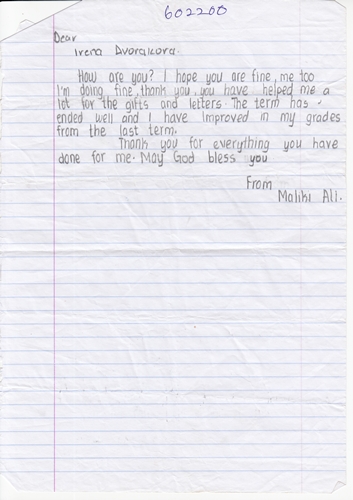 602200
Dear
Irena Dvorakova.
How are you? I hope you are fine, me too
I'm doing fine, thank you, you have helped me a
lot for the gifts and letters. The term has
ended well and I have improved in my grades
from the last term.
Thank you for everything you have
done for me. May God bless you
From
Maliki Ali.